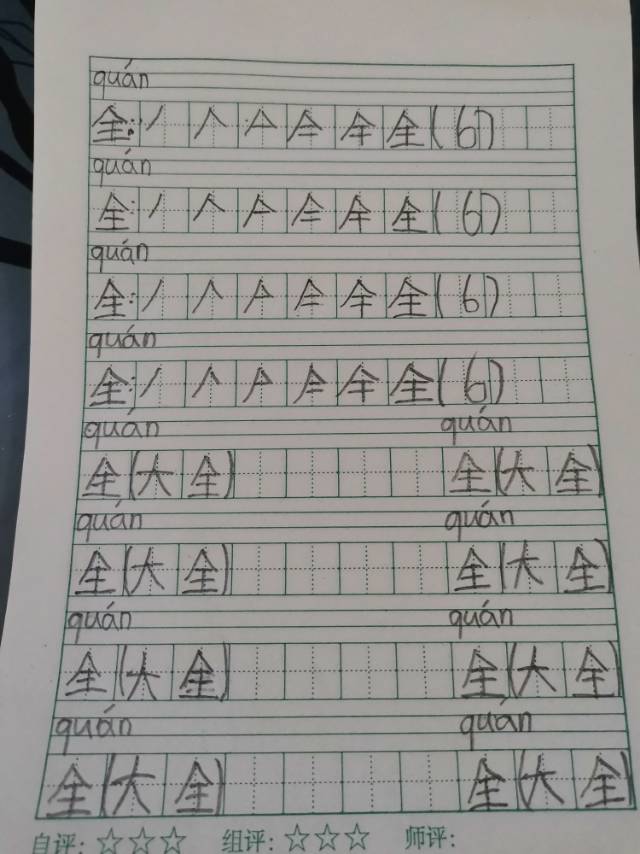 quán
全:丿人亼亽仐全(6)
quán
全:丿人亼亽仐全(6)
quán
全:丿人亼亽仐全(6)
quán
全:丿人亼亽仐全(6)
quán quán
全(大全) 全(大全)
quán quán
全(大全) 全(大全)
quán quán
全(大全) 全(大全)
quán quán
全(大全) 全(大全)
自评:☆☆☆ 组评:☆☆☆ 师评: